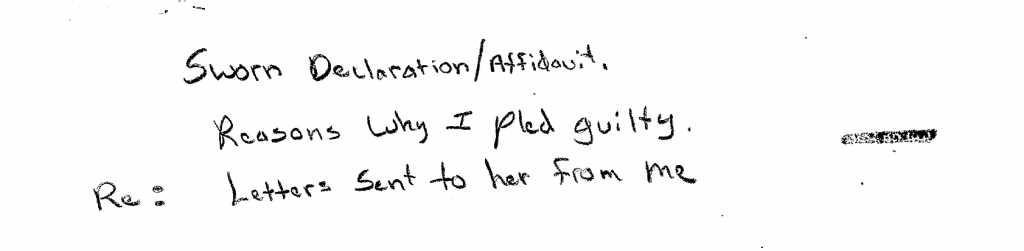 Sworn Declaration/Affidavit.
Reasons Why I pled guilty.
Re: Letters Sent to her from me